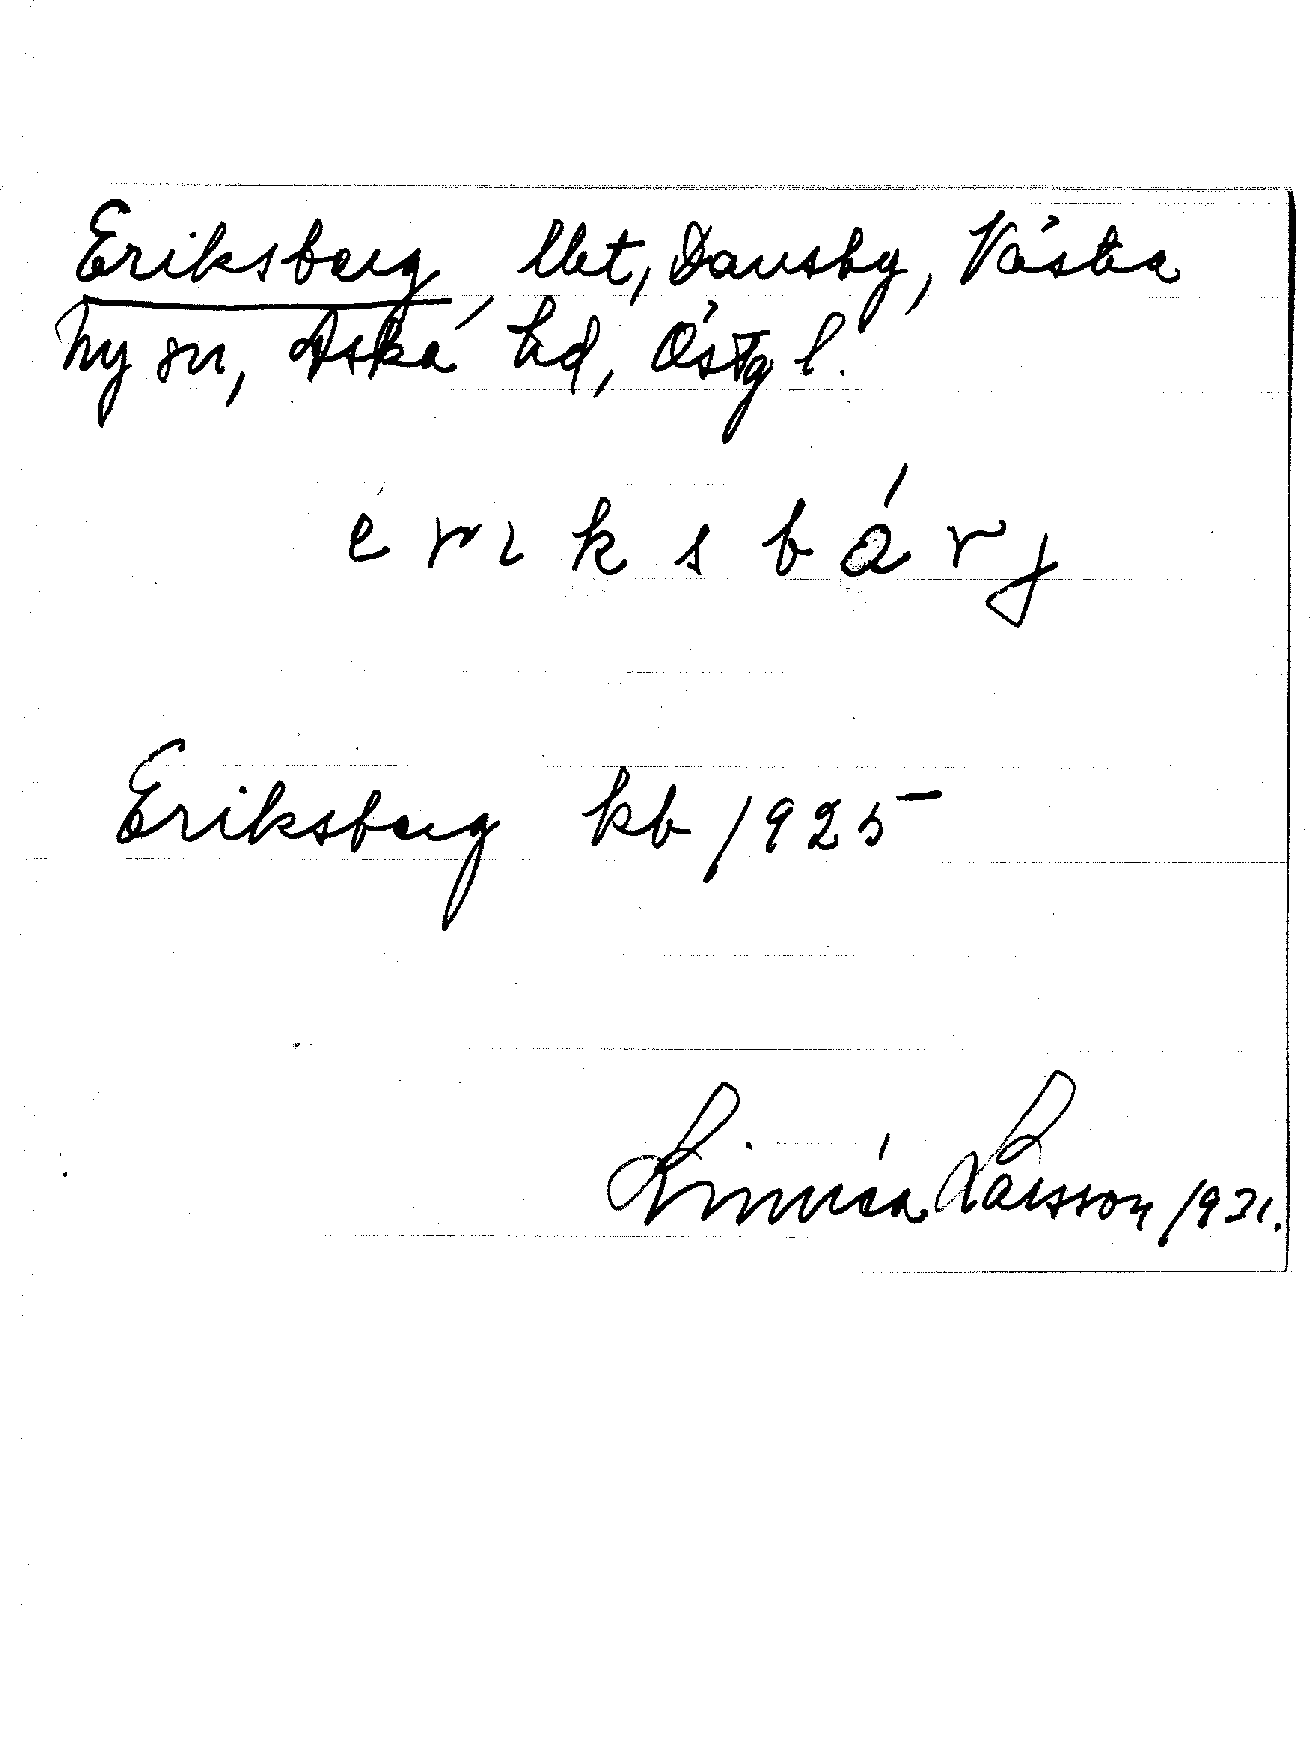 Eriksberg, lht, Dansby, Västra
Ny sn, Aska hd, Östg l.
e r i k s b ä r j
Eriksberg kb 1925
Linnéa Larsson 1931.